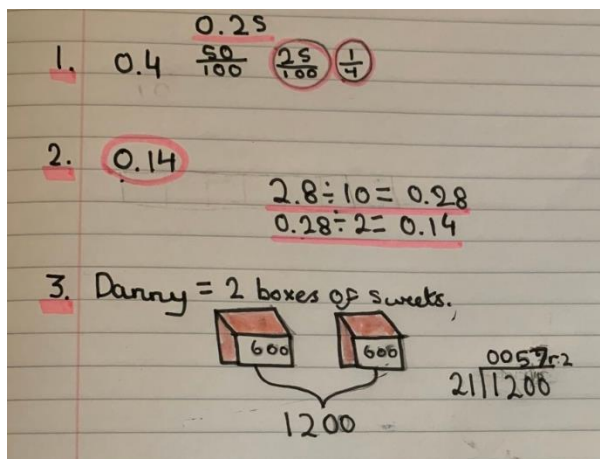 0.25
1. 0.4 50/100 25/100 1/4
2. 0.14
2.8 ÷ 10 = 0.28
0.28 ÷ 2 = 0.14
3. Danny = 2 boxes of sweets.
600 600
1200
0057r.2
21 1200